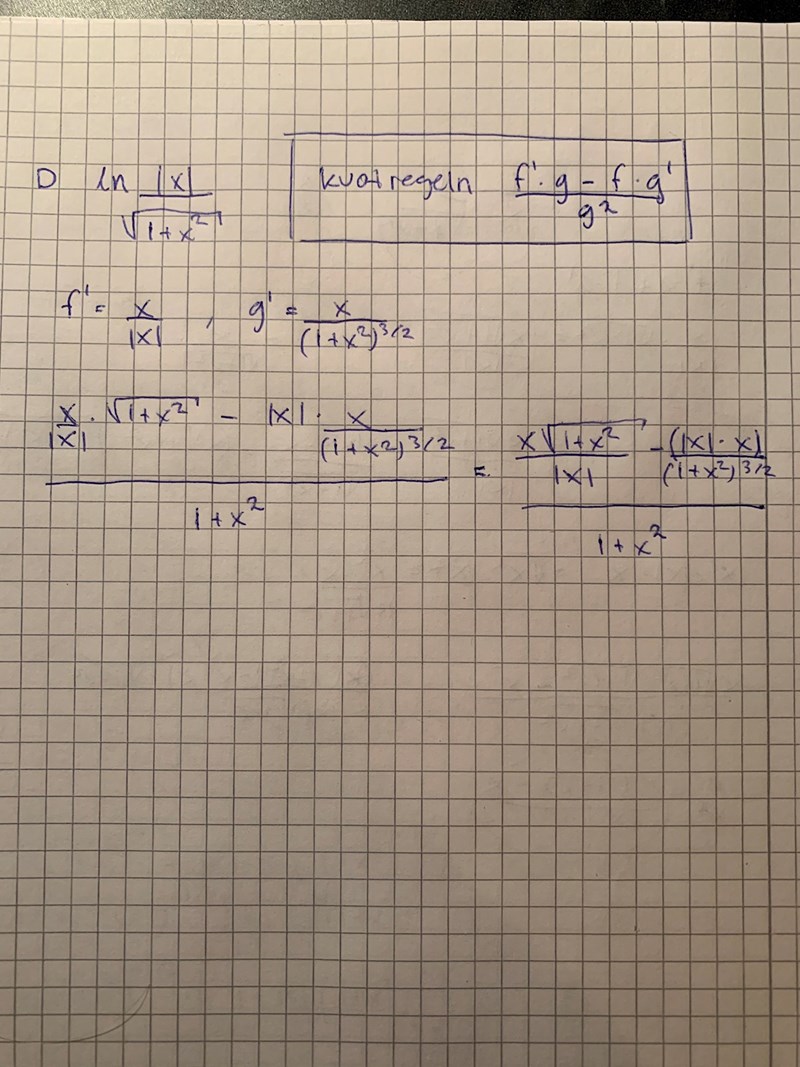 D ln |x| / √(1+x²)
kvotregeln (f'·g − f·g') / g²
f' = x/|x| , g' = x/(1+x²)^3/2
(x/|x| · √(1+x²) − |x| · x/(1+x²)^3/2) / (1+x²) = (x√(1+x²)/|x| − (|x|·x)/(1+x²)^3/2) / (1+x²)